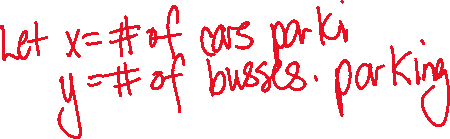 Let x = # of cars parki
y = # of busses. parking